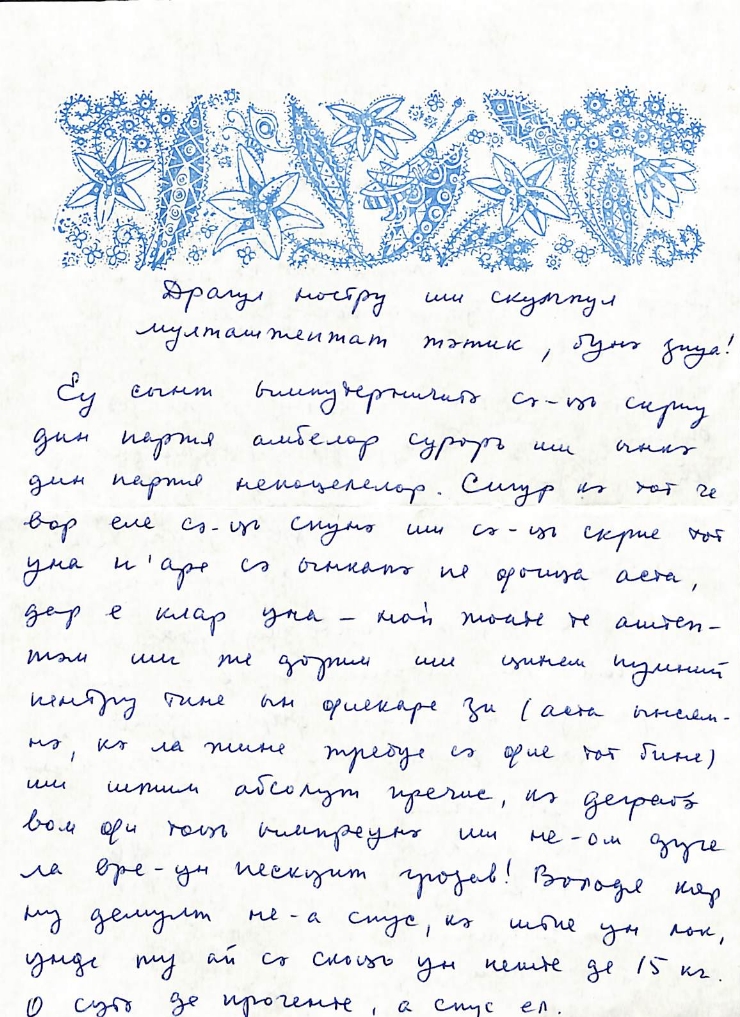 Драгул ностру ши скумпул
мулташтептат тэтик, бунэ зиуа!
Еу сынт ымпутерничитэ сэ-ць скриу
дин партя амбелор сурорь ши ынкэ
дин партя непоцелелор. Сигур кэ тот че
вор еле сэ-ць спунэ ши сэ-ць скрие тот
уна н'аре сэ ынкапэ пе фоица аста,
дар е клар уна – ной тоате те аштеп-
тэм ши те дорим ши цинем пумний
пентру тине ын фиекаре зи (аста ынсеам-
нэ, кэ ла тине требуе сэ фие тот бине)
ши штим абсолут пречис, кэ деграбэ
вом фи тоць ымпреунэ ши не-ом дуче
ла вре-ун пескуит грозав! Володя кяр
ну демулт не-а спус, кэ штие ун лок,
унде ту ай сэ скоць ун пеште де 15 кг.
О сутэ де проченте, а спус ел.